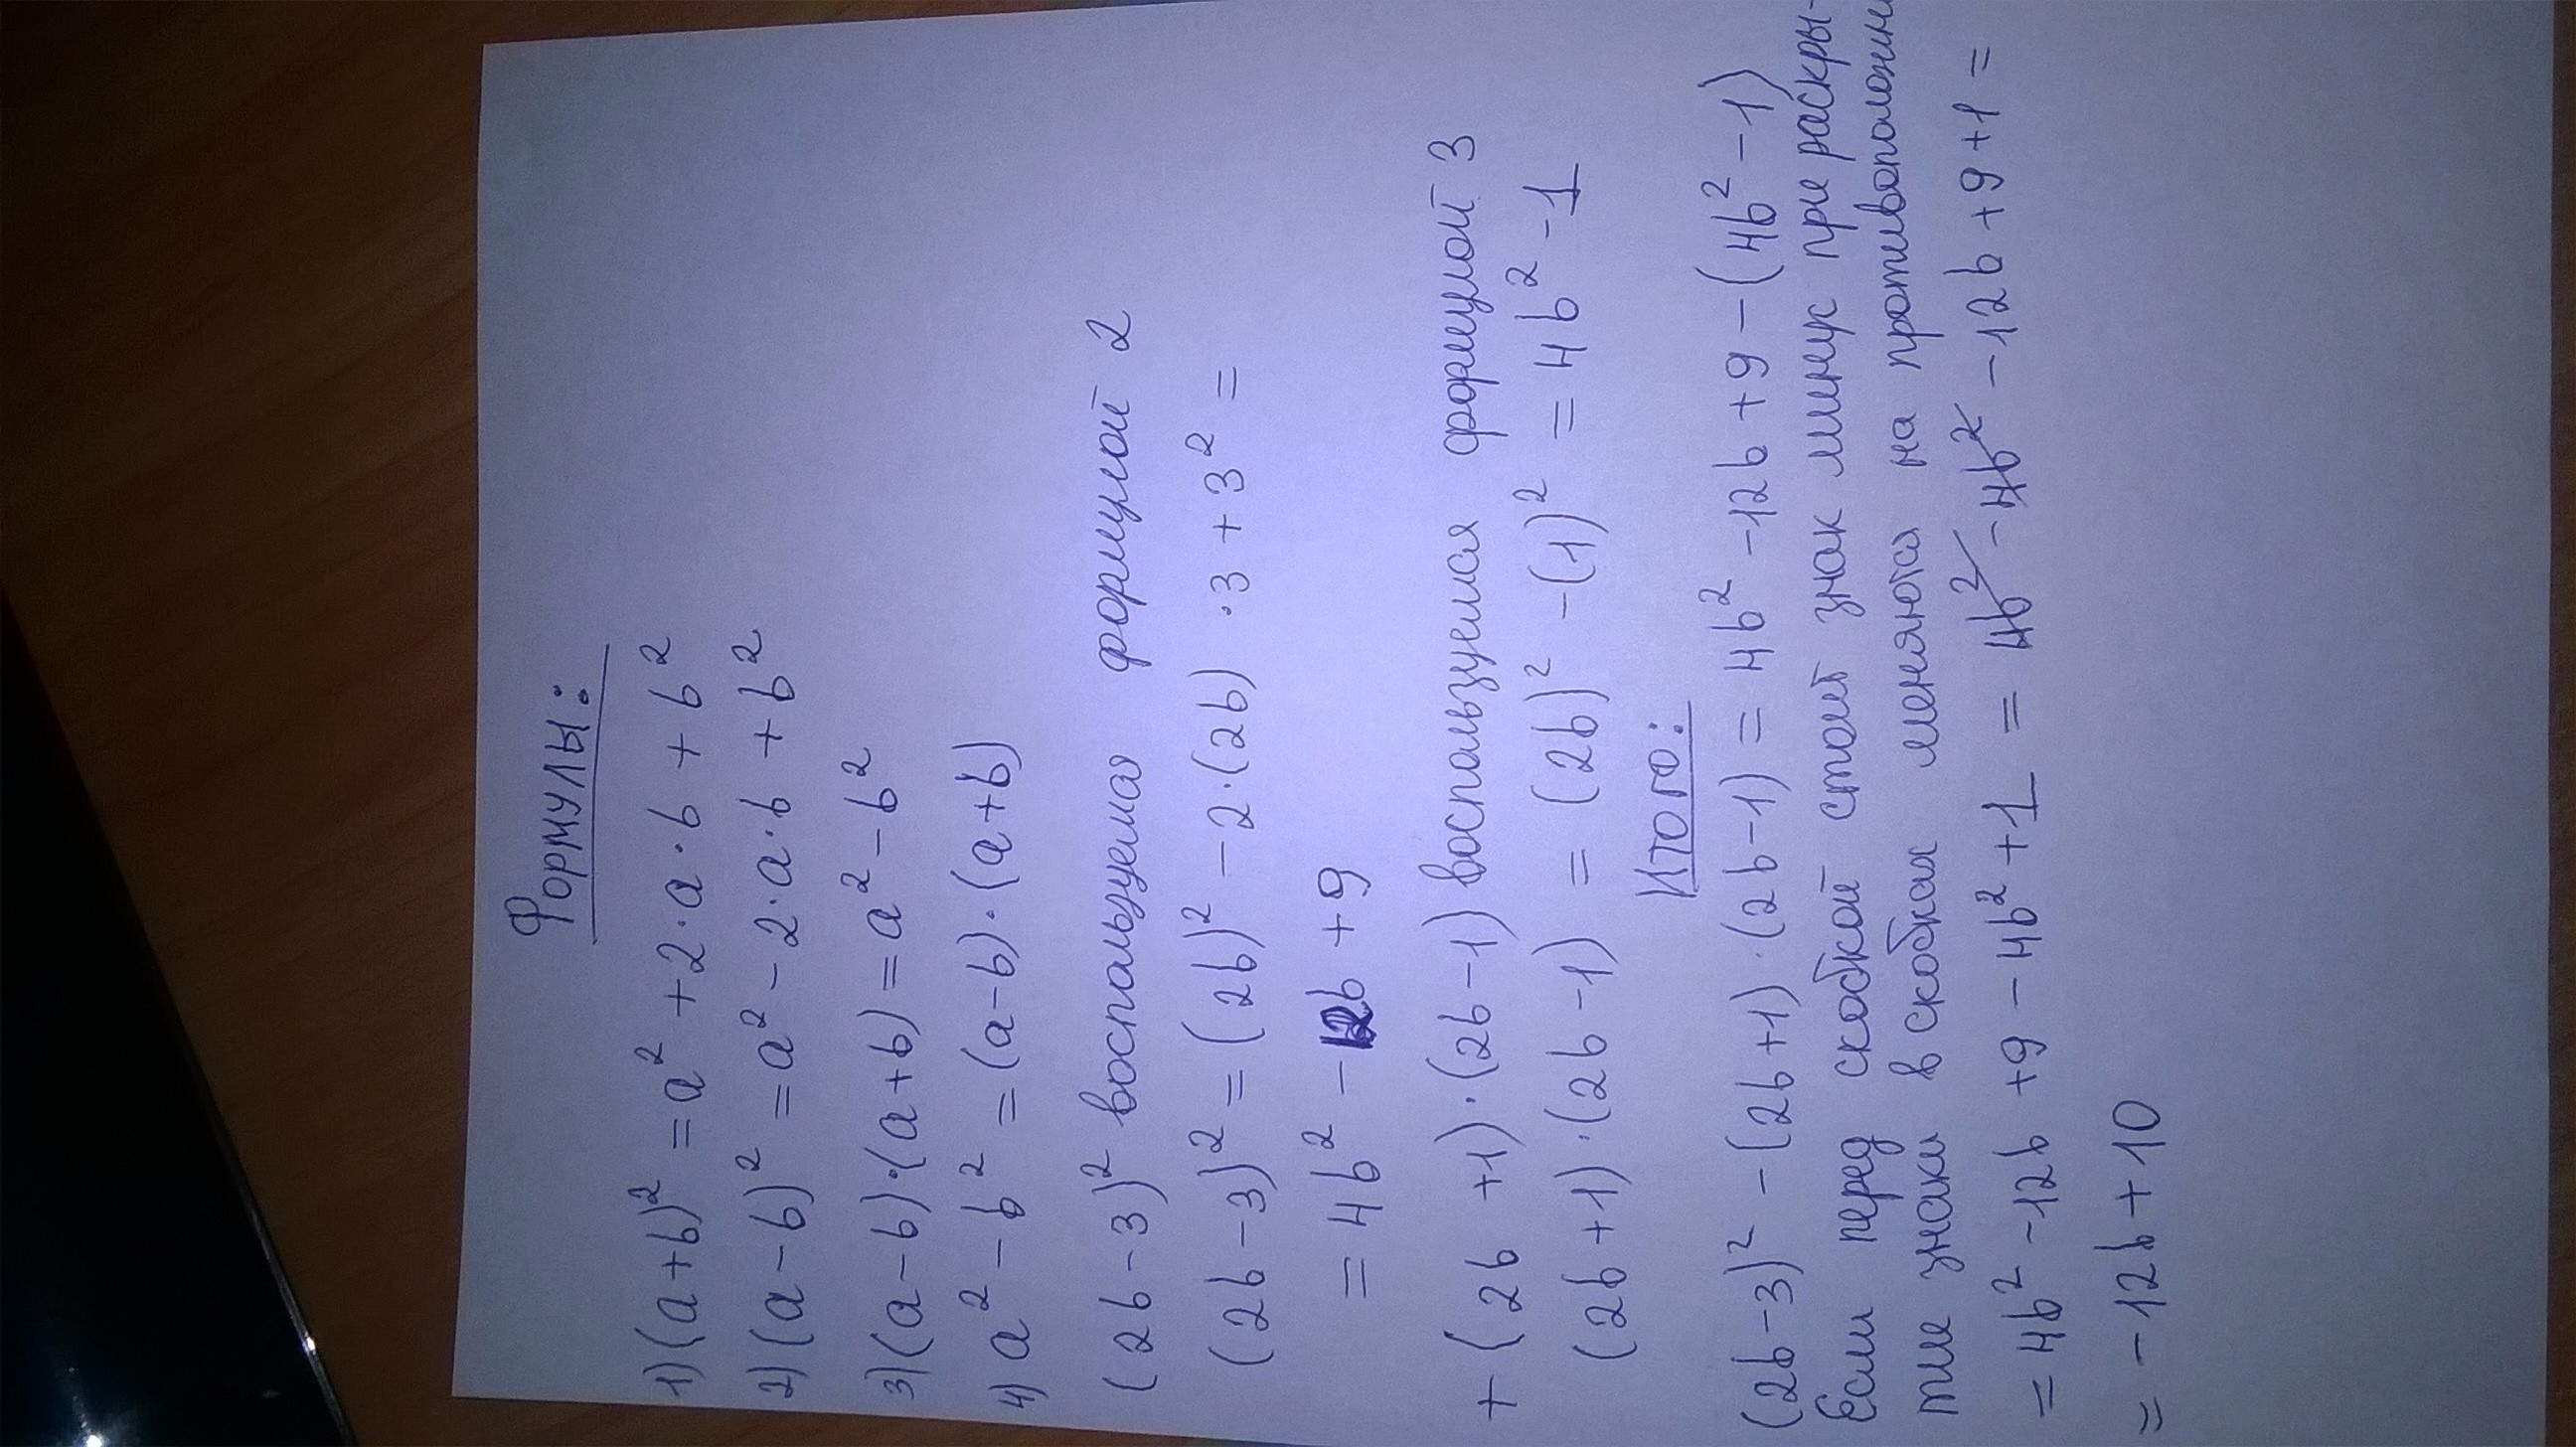 Формулы:
1) (a+b)² = a² + 2·a·b + b²
2) (a-b)² = a² - 2·a·b + b²
3) (a-b)·(a+b) = a² - b²
4) a² - b² = (a-b)·(a+b)
(2b-3)² воспользуемся формулой 2
(2b-3)² = (2b)² - 2·(2b)·3 + 3² =
= 4b² - 12b + 9
+ (2b+1)·(2b-1) воспользуемся формулой 3
(2b+1)·(2b-1) = (2b)² - (1)² = 4b² - 1
Итого:
(2b-3)² - (2b+1)·(2b-1) = 4b² - 12b + 9 - (4b² - 1)
Если перед скобкой стоит знак минус при раскры-
тие знаки в скобках меняются на противоположн
= 4b² - 12b + 9 - 4b² + 1 = 4b² - 4b² - 12b + 9 + 1 =
= -12b + 10